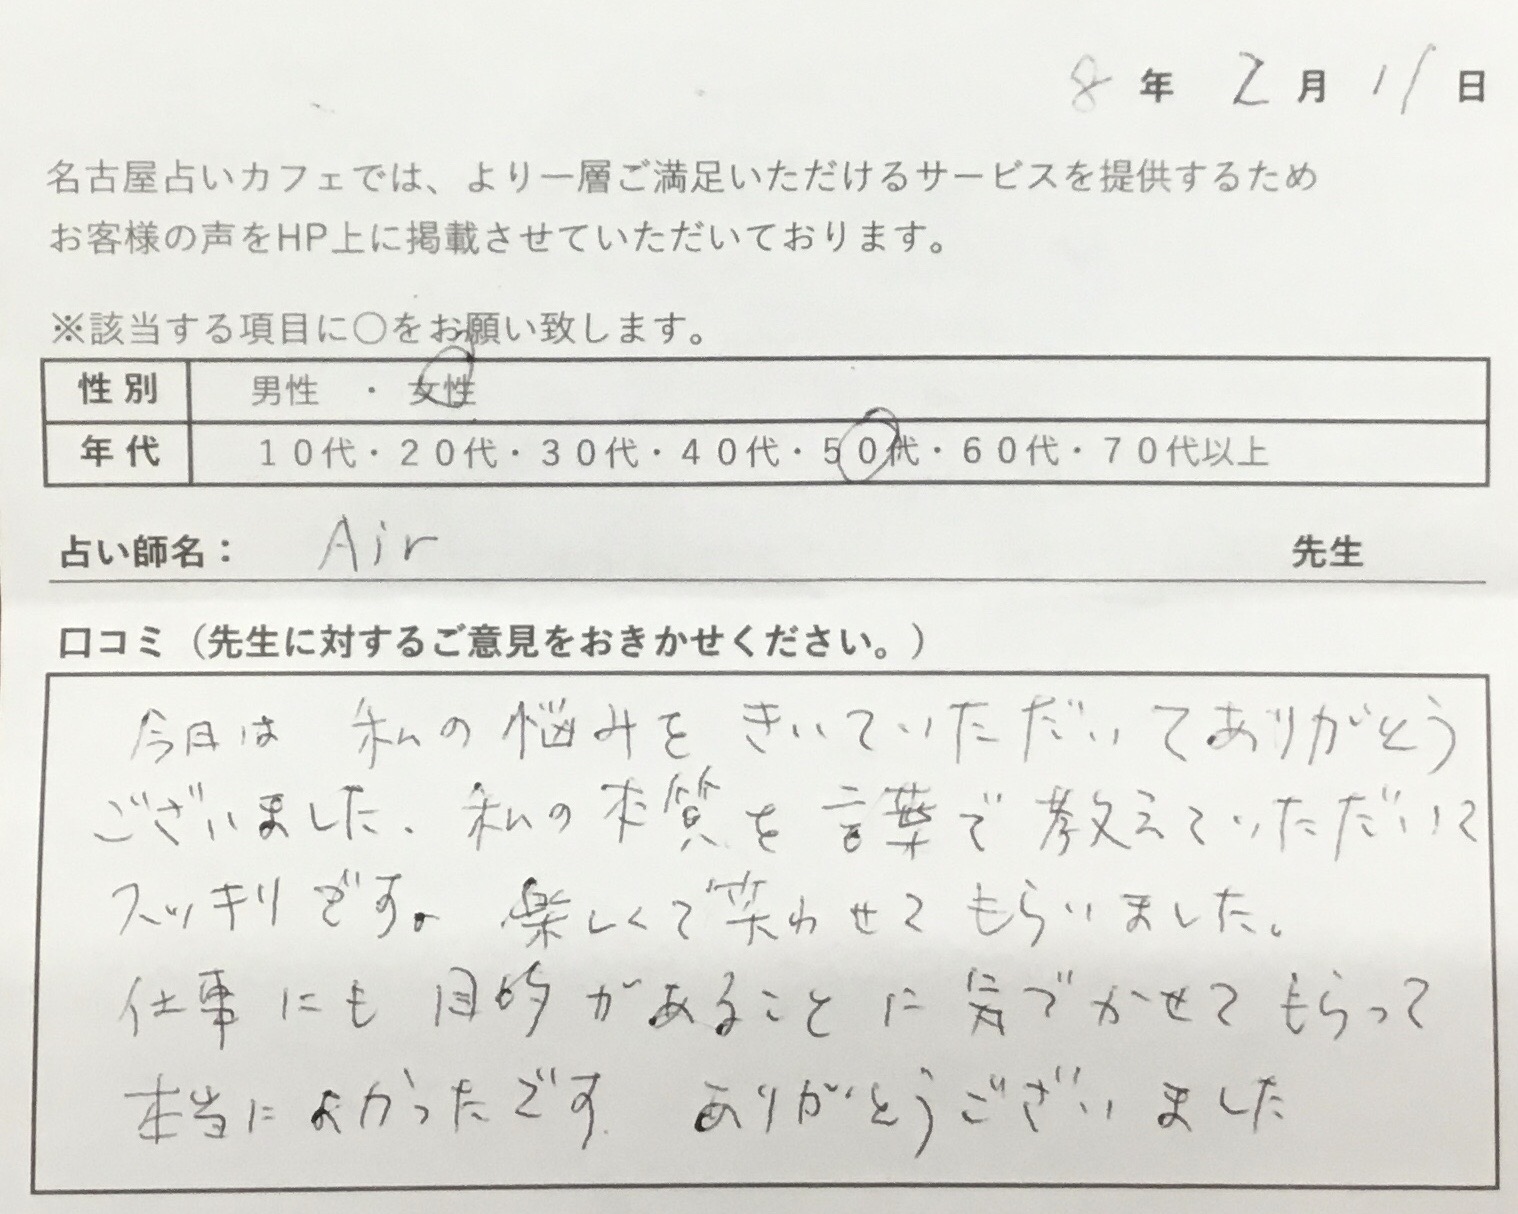 8年 2月 11日
名古屋占いカフェでは、より一層ご満足いただけるサービスを提供するため
お客様の声をHP上に掲載させていただいております。
※該当する項目に○をお願い致します。
性別 男性 ・ 女性
年代 10代・20代・30代・40代・50代・60代・70代以上
占い師名： Air 先生
口コミ（先生に対するご意見をおきかせください。）
今日は 私の悩みを きいていただいてありがとう
ございました。私の本質を言葉で教えていただいて
スッキリです。楽しくて笑わせてもらいました。
仕事にも目的があることに気でかせてもらって
本当によかったです ありがとうございました